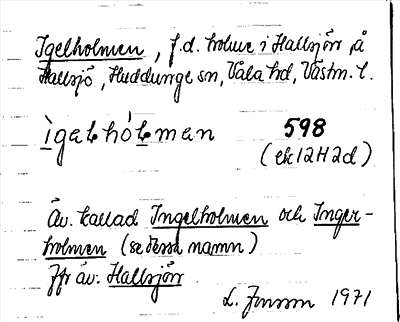 Igelholmen, f.d. holme i Hallsjön å
Hallsjö, Huddunge sn, Våla hd, Västm. l.
ìgəlhólmən 598
(ek 12H2d)
Äv. kallad Ingelholmen och Inger-
holmen (se dessa namn)
Jfr äv. Hallsjön
L. Jonsson 1971